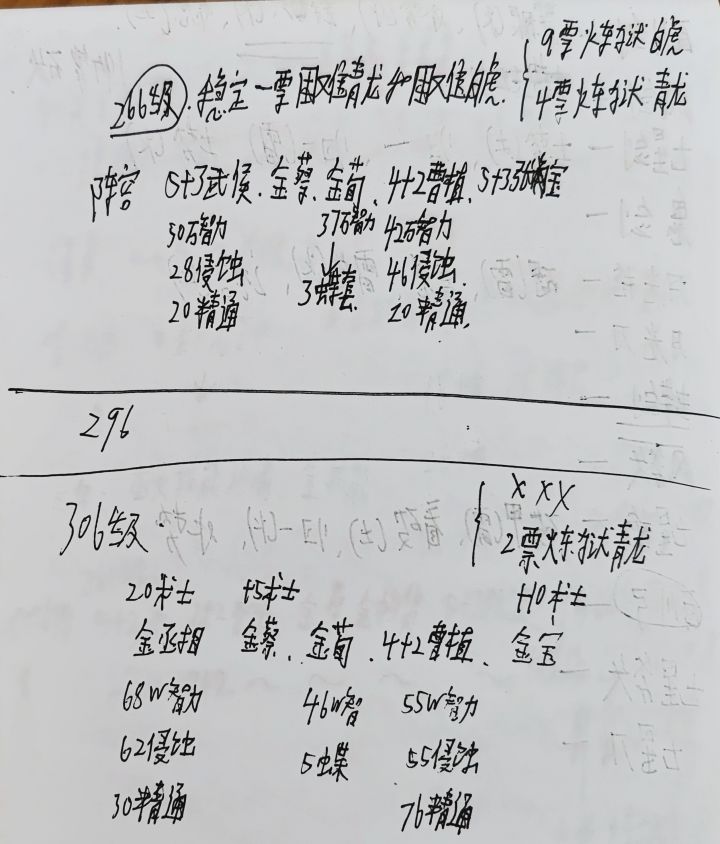 9票炼狱白虎
266级. 稳定一票困难青龙和困难白虎.
4票炼狱青龙
阵容 5+3武侯. 金蔡. 金荀. 4+2曹植. 5+3 宝
50万智力 37万智力 42万智力
28侵蚀 46侵蚀.
20精通 3蝶套. 20精通.
296
306级. XXX
2票炼狱青龙
20术士 +5术士 +10术士
金丞相 金蔡、金荀、4+2曹植、金宝
68W智力 46W智 55W智力
62侵蚀 5蝶 55侵蚀
30精通 76精通